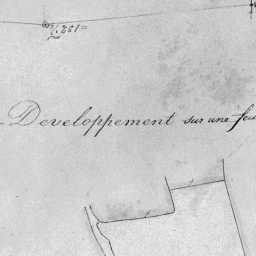 Developpement sur une feu